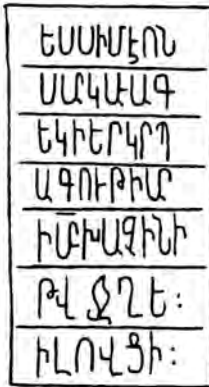 ԵՍՍԻՄԷՈՆ
ՍԱԿԱՒԱԳ
ԵԿԻԵՐԿՐՊ
ԱԳՈՒԹԻՄ
ԻՄԽԱՉԻՆԻ
ԹՎ ՋՂԵ:
ԻԼՈՎՅԻ: